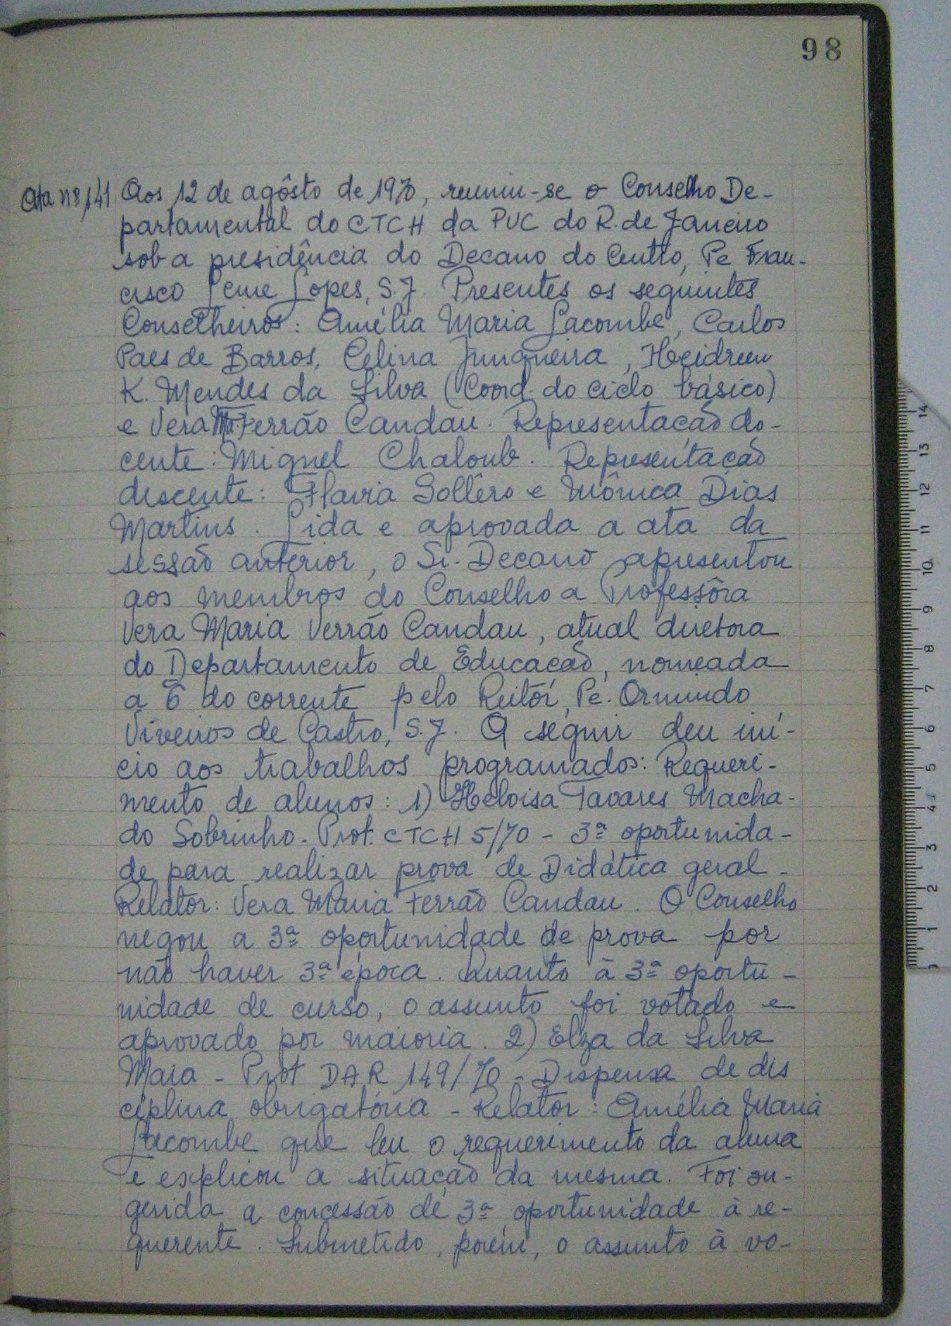 98
Ata nº 141 Aos 12 de agôsto de 1970, reuniu-se o Conselho De-
partamental do CTCH da PUC do R. de Janeiro
sob a presidência do Decano do Centro, Pe Fran-
cisco Leme Lopes, S.J. Presentes os seguintes
Conselheiros: Amélia Maria Lacombe, Carlos
Paes de Barros, Celina Junqueira,
K. Mendes da Silva (Coord. do ciclo básico)
e Vera M. Ferrão Candau. Representação do-
cente: Miguel Chaloub. Representação
discente: Flavia Sollêro e Mônica Dias
Martins. Lida e aprovada a ata da
sessão anterior, o Sr. Decano apresentou
aos membros do Conselho a Professôra
Vera Maria Verrão Candau, atual diretora
do Departamento de Educação, nomeada
a 6 do corrente pelo Reitor, Pe. Ormindo
Viveiros de Castro, S.J. A seguir deu iní-
cio aos trabalhos programados: Requeri-
mento de alunos: 1) Heloisa Tavares Macha-
do Sobrinho. Prot. CTCH 5/70 - 3ª oportunida-
de para realizar prova de Didática geral -
Relator: Vera Maria Ferrão Candau. O Conselho
negou a 3ª oportunidade de prova por
não haver 3ª época. Quanto à 3ª oportu-
nidade de curso, o assunto foi votado e
aprovado por maioria. 2) Elza da Silva
Maia - Prot DAR 149/70 - Dispensa de dis
ciplina obrigatória - Relator: Amélia Maria
Lacombe que leu o requerimento da aluna
e explicou a situação da mesma. Foi su-
gerida a concessão de 3ª oportunidade à re-
querente. Submetido, porém, o assunto à vo-
14
13
12
11
10
9
8
7
6
5
4
3
2
1